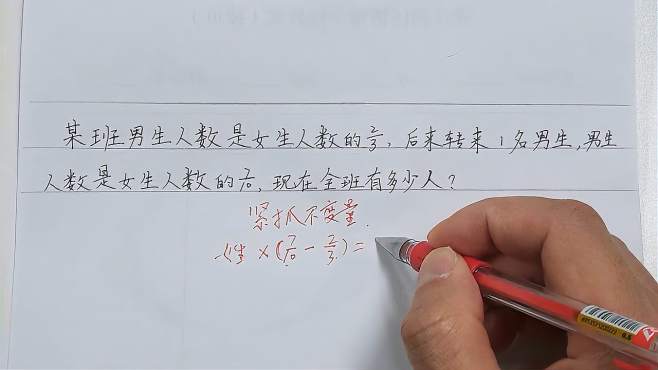 某班男生人数是女生人数的2/3,后来转来1名男生,男生
人数是女生人数的7/10,现在全班有多少人?
紧抓不变量.
女生×(7/10-2/3)=